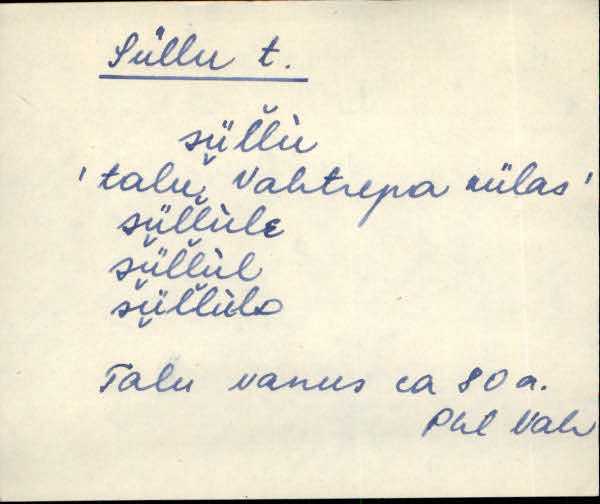 Süllu t.
süllù
'talu, Vahtrepa külas'
süllùle
süllùl
süllùlo
Talu vanus ca 80 a.
Phl Vah